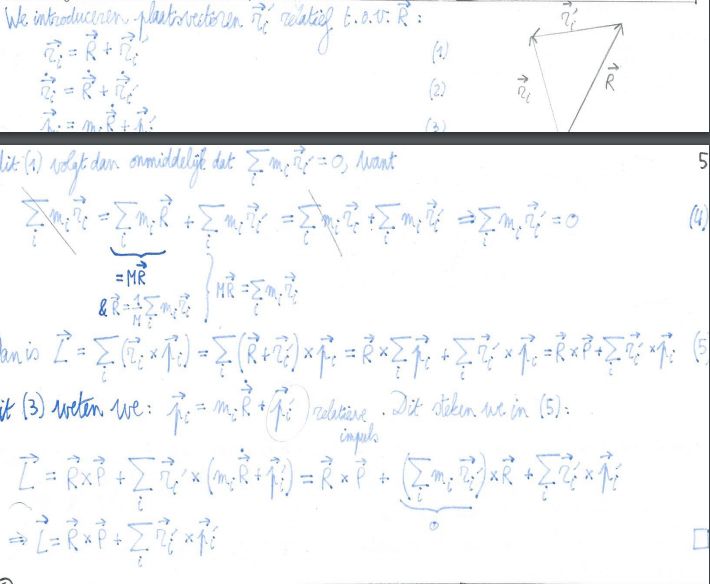 We introduceren plaatsvectoren r⃗ᵢ′ relatief t.o.v. R⃗ :
r⃗ᵢ′
r⃗ᵢ = R⃗ + r⃗ᵢ′ (1)
r⃗ᵢ R⃗
ṙ⃗ᵢ = Ṙ⃗ + ṙ⃗ᵢ′ (2)
p⃗ᵢ = mᵢ Ṙ⃗ + p⃗ᵢ′ (3)
5
uit (1) volgt dan onmiddelijk dat ∑ᵢ mᵢ r⃗ᵢ′ = 0, want
∑ᵢ mᵢ r⃗ᵢ = ∑ᵢ mᵢ R⃗ + ∑ᵢ mᵢ r⃗ᵢ′ = ∑ᵢ mᵢ r⃗ᵢ + ∑ᵢ mᵢ r⃗ᵢ′ ⇒ ∑ᵢ mᵢ r⃗ᵢ′ = 0 (4)
= MR⃗
& R⃗ = 1/M ∑ᵢ mᵢ r⃗ᵢ } MR⃗ = ∑ᵢ mᵢ r⃗ᵢ
dan is L⃗ = ∑ᵢ (r⃗ᵢ × p⃗ᵢ) = ∑ᵢ (R⃗ + r⃗ᵢ′) × p⃗ᵢ = R⃗ × ∑ᵢ p⃗ᵢ + ∑ᵢ r⃗ᵢ′ × p⃗ᵢ = R⃗ × P⃗ + ∑ᵢ r⃗ᵢ′ × p⃗ᵢ (5
uit (3) weten we : p⃗ᵢ = mᵢ Ṙ⃗ + p⃗ᵢ′ relatieve impuls . Dit steken we in (5):
L⃗ = R⃗ × P⃗ + ∑ᵢ r⃗ᵢ′ × (mᵢ Ṙ⃗ + p⃗ᵢ′) = R⃗ × P⃗ + (∑ᵢ mᵢ r⃗ᵢ′) × Ṙ⃗ + ∑ᵢ r⃗ᵢ′ × p⃗ᵢ′
0
⇒ L⃗ = R⃗ × P⃗ + ∑ᵢ r⃗ᵢ′ × p⃗ᵢ′ □